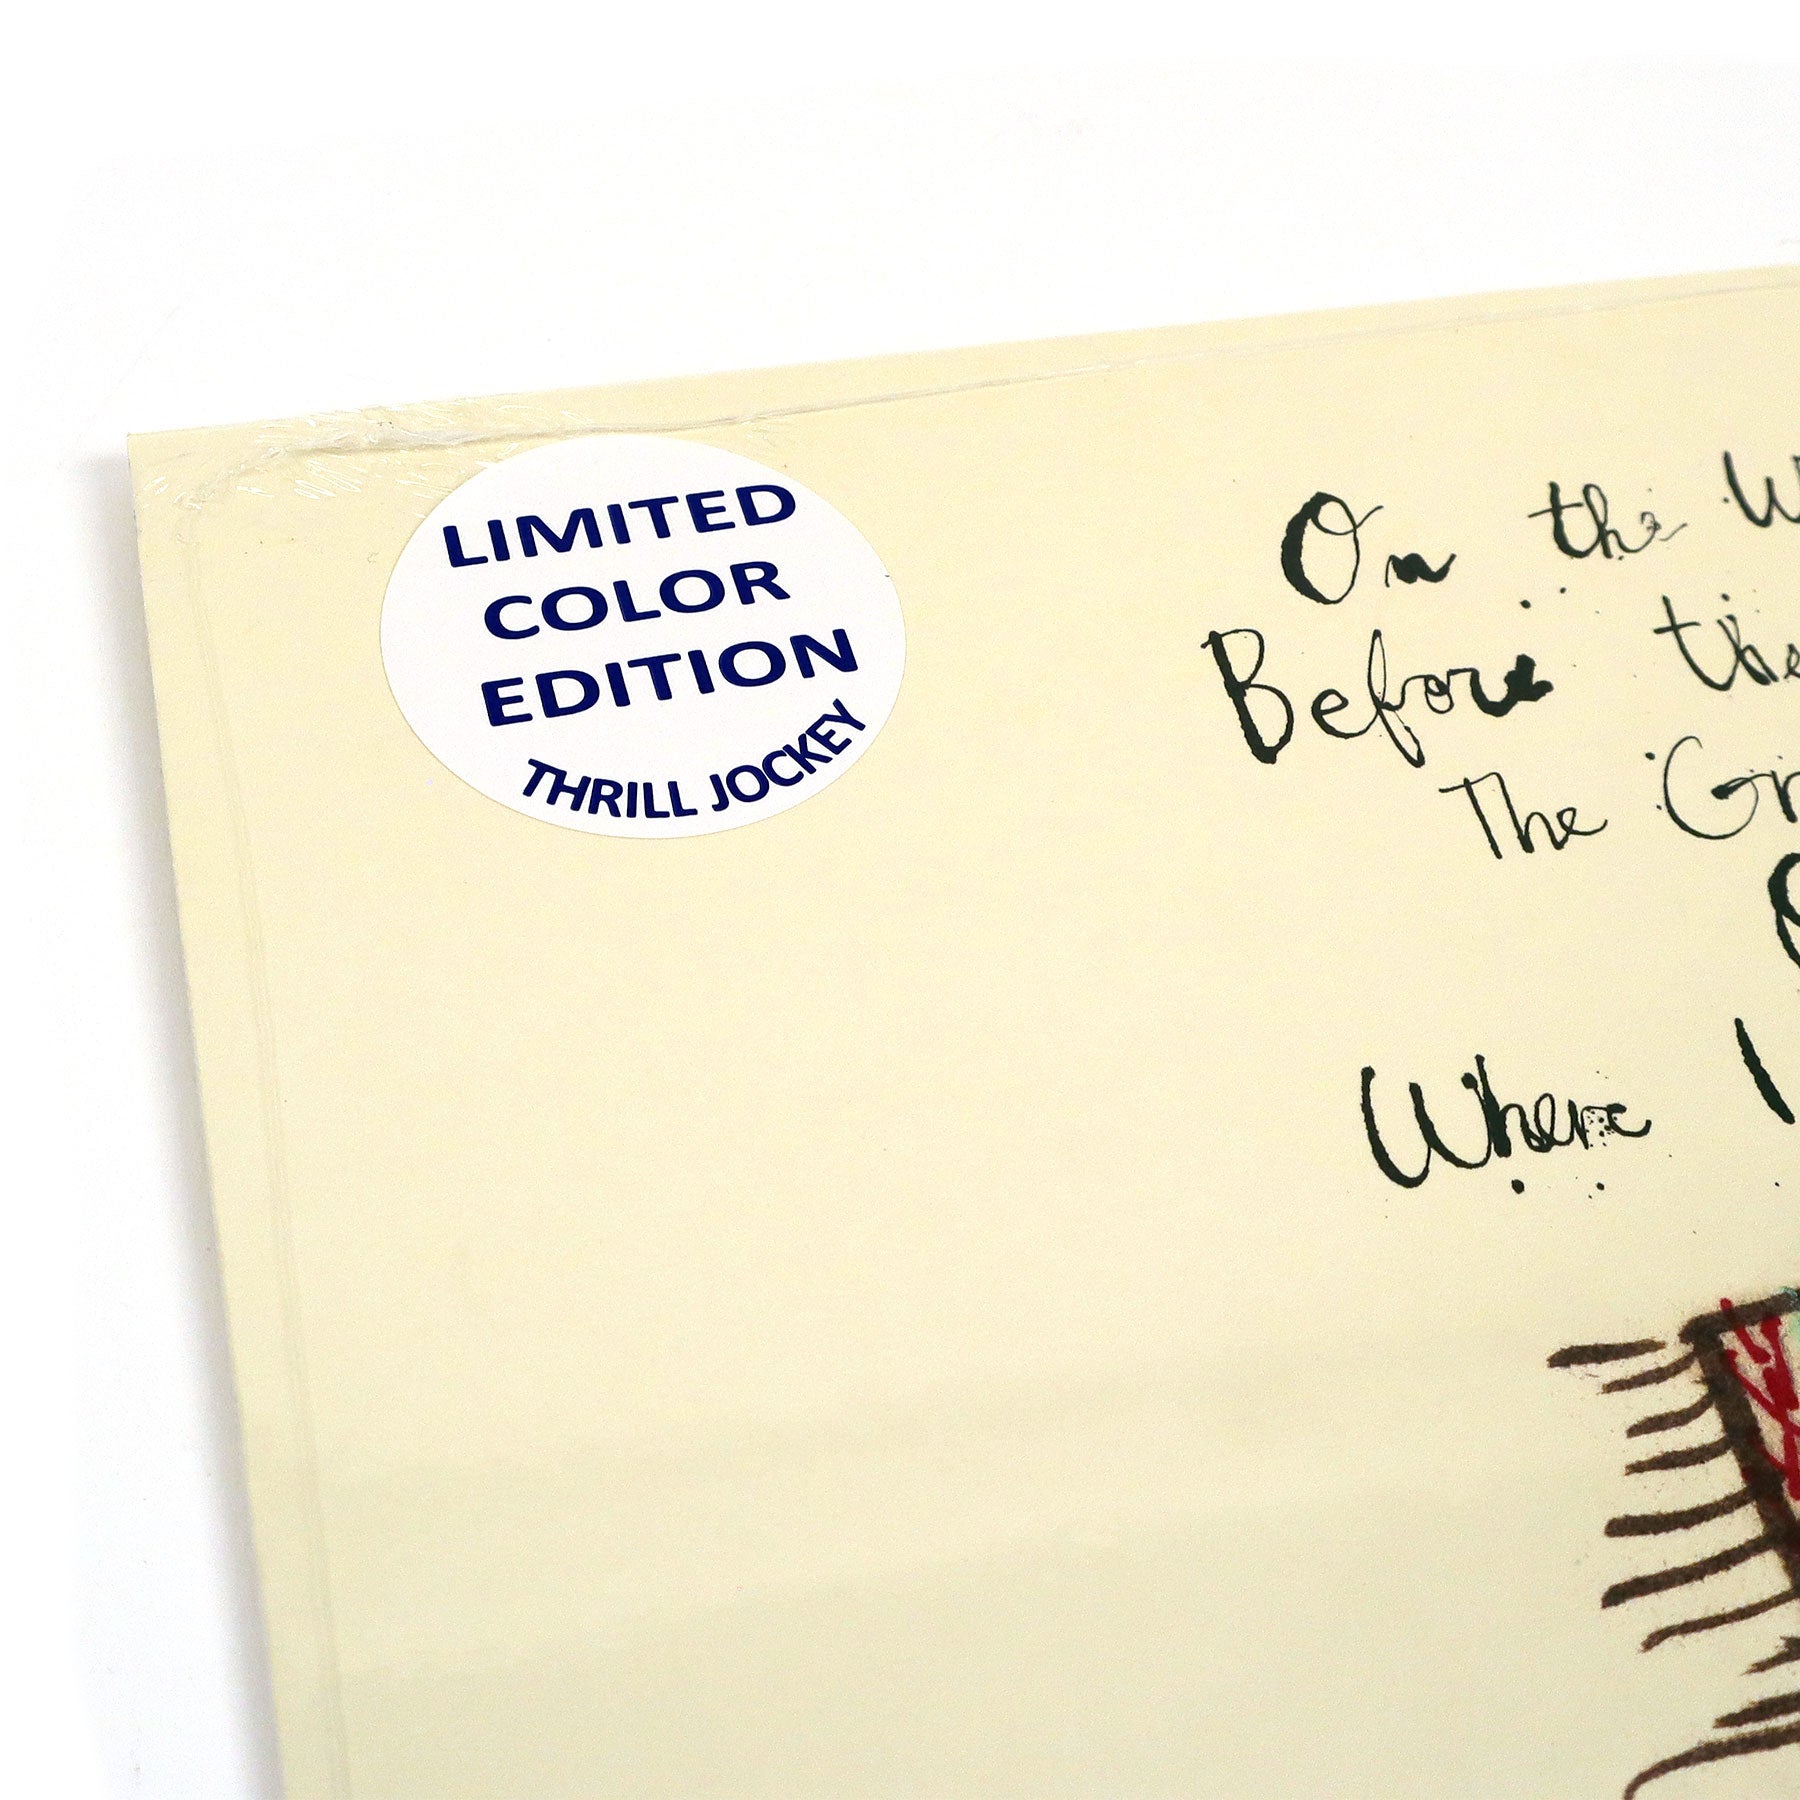 LIMITED
COLOR
EDITION
THRILL JOCKEY
On the W
Before the
The Gr
Where I